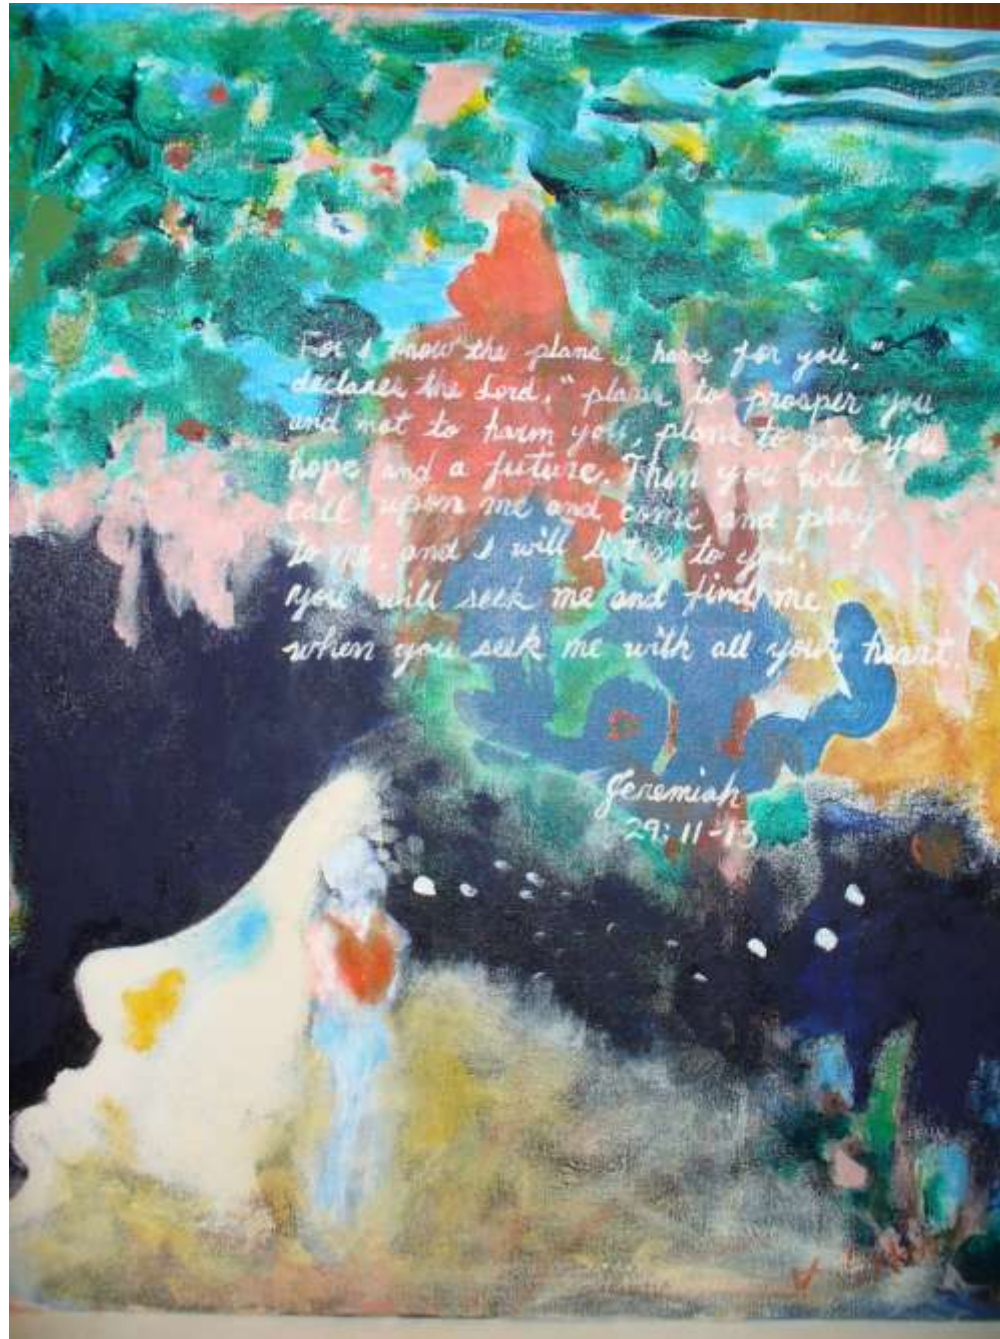 For I know the plans I have for you,"
declares the Lord, "plans to prosper you
and not to harm you, plans to give you
hope and a future. Then you will
call upon me and come and pray
to me, and I will listen to you.
You will seek me and find me
when you seek me with all your heart.
Jeremiah
29:11-13